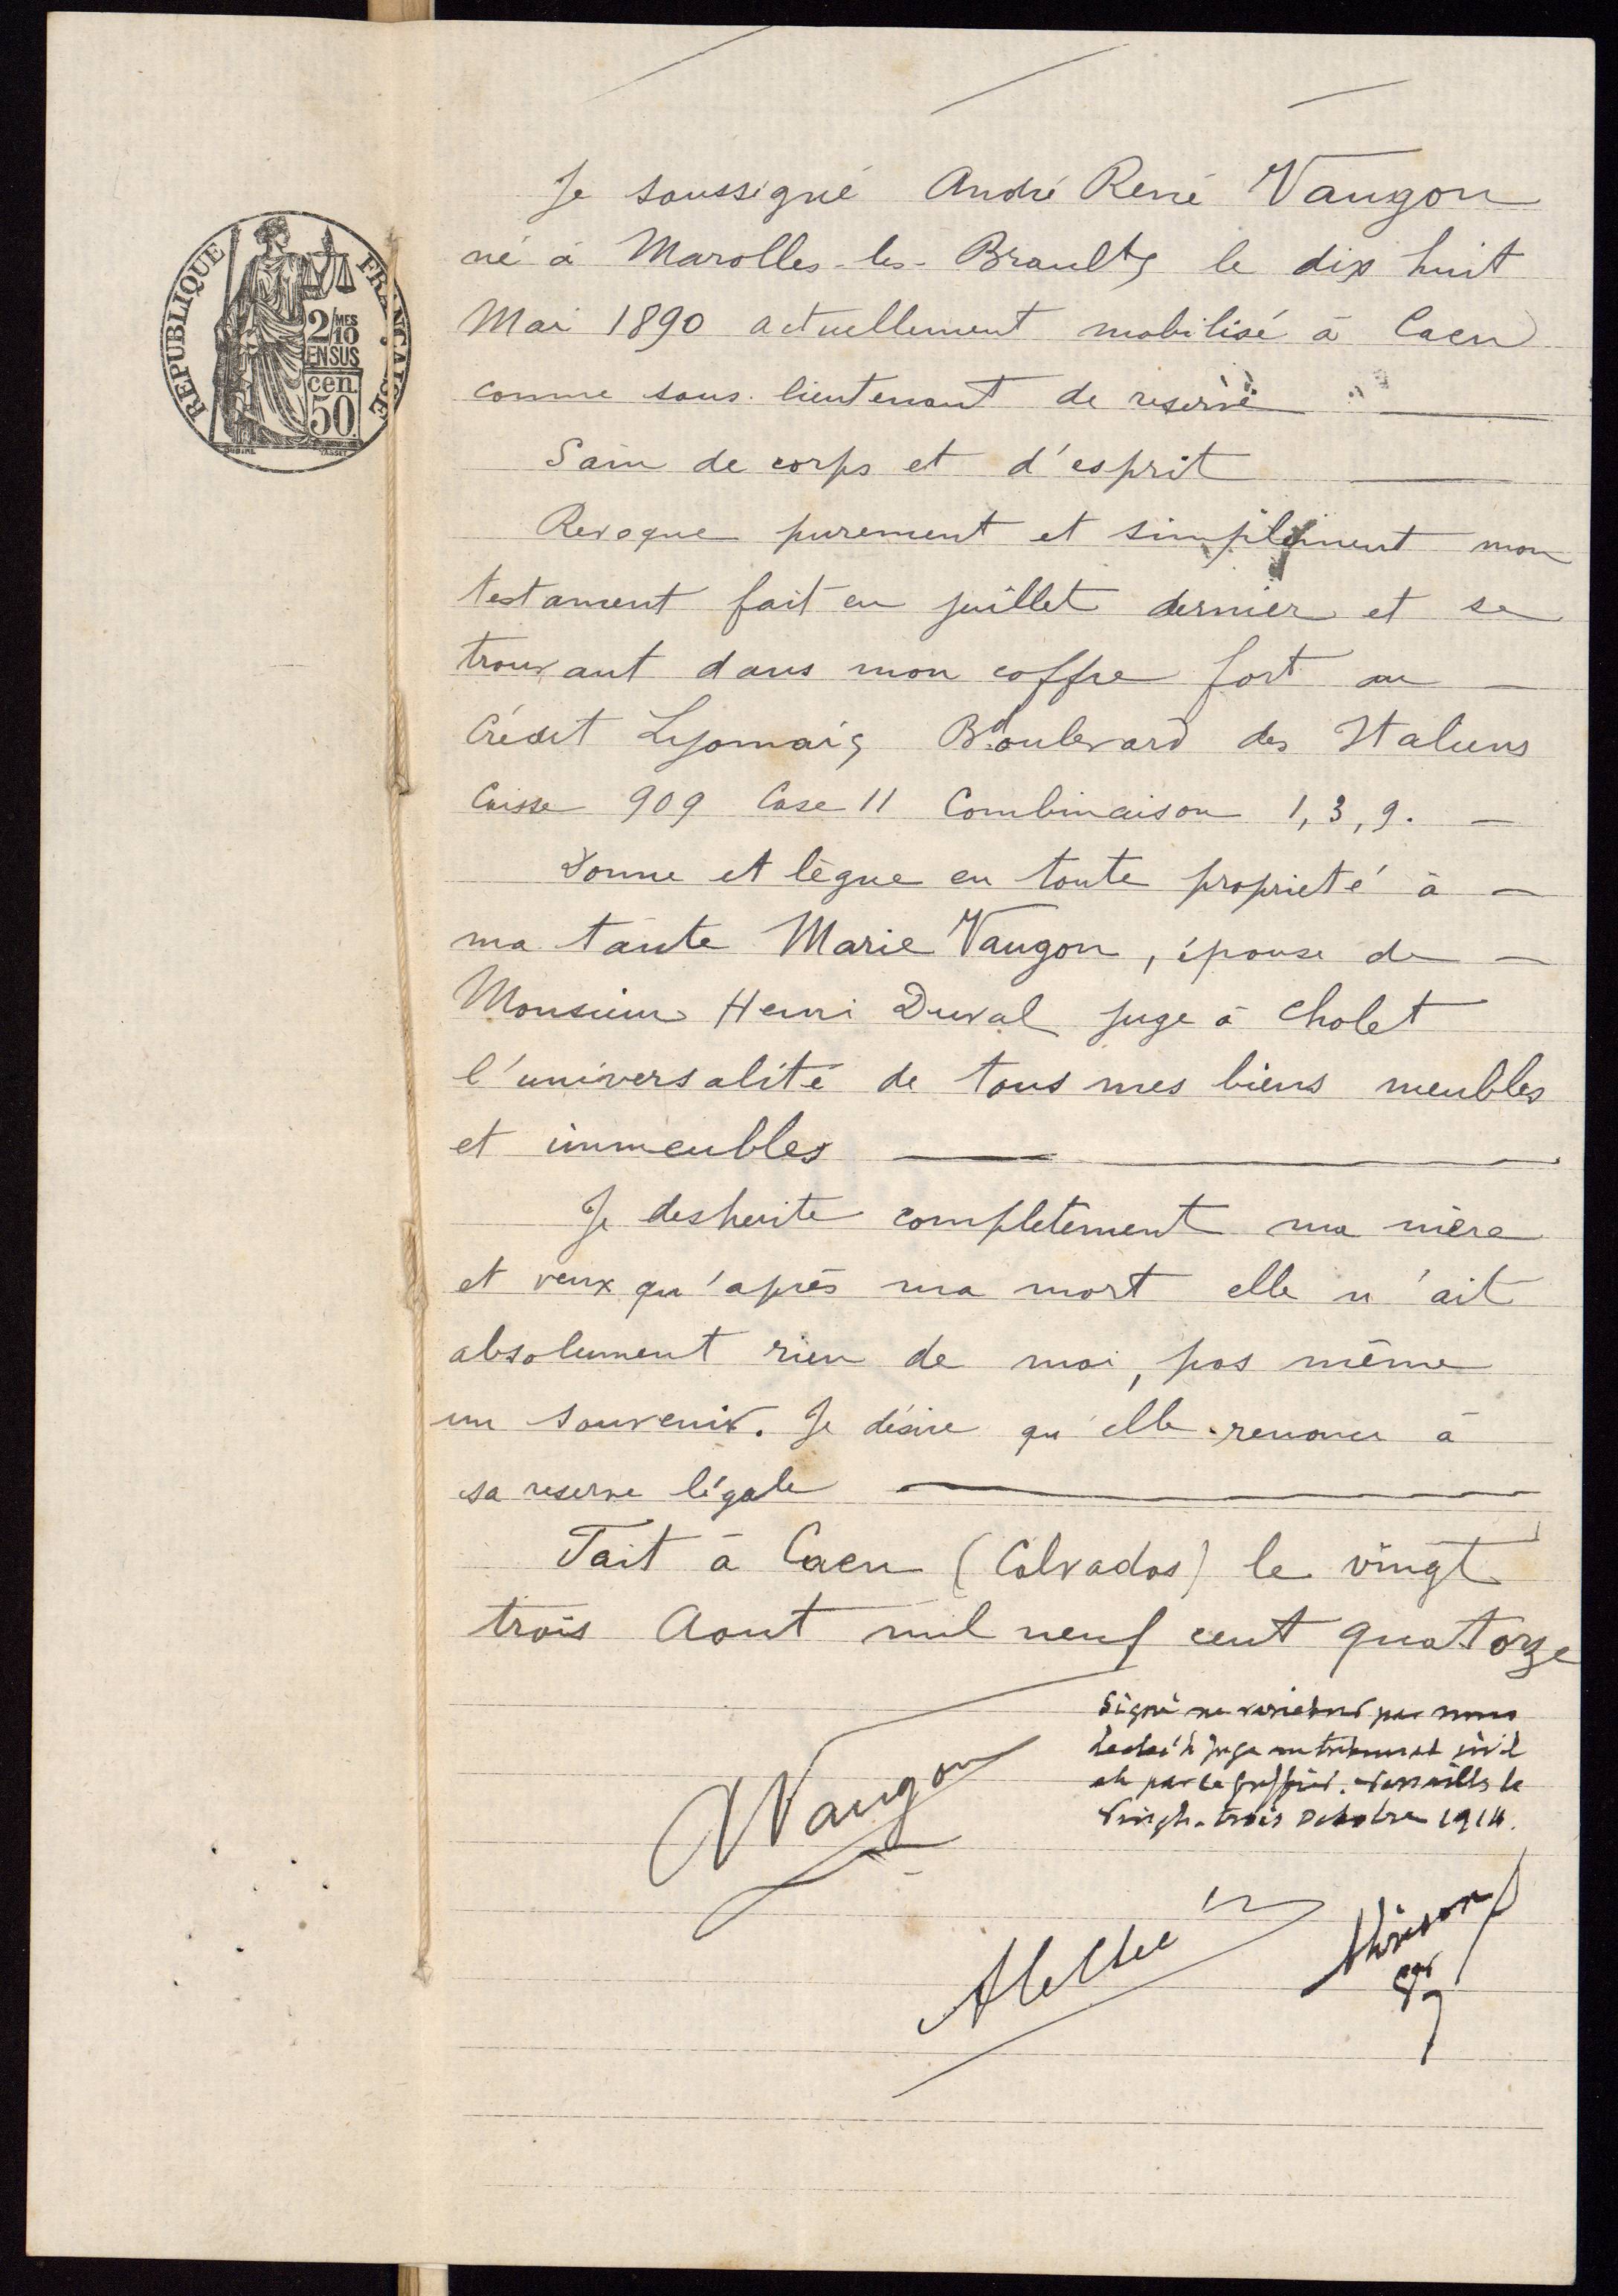 REPUBLIQUE FRANÇAISE
2/MES
10
EN SUS
cen.
50.
Je soussigné André René Vaugon
né à Marolles-les-Braults le dix huit
Mai 1890 actuellement mobilisé à Caen
comme sous lieutenant de reserve
Sain de corps et d'esprit
Revoque purement et simplement mon
testament fait en juillet dernier et se
trouvant dans mon coffre fort au
Crédit Lyonnais Boulevard des Italiens
Caisse 909 Case 11 Combinaison 1, 3, 9.
Donne et lègue en toute proprieté à
ma tante Marie Vaugon, épouse de
Monsieur Henri Duval juge à Cholet
l'universalité de tous mes biens meubles
et immeubles
Je desherite completement ma mère
et veux qu'après ma mort elle n'ait
absolument rien de moi, pas même
un souvenir. Je désire qu'elle renonce à
sa reserve légale
Fait à Caen (Calvados) le vingt
trois Aout mil neuf cent quatorze
Signé ne varietur par nous
juge au tribunal civil
et par le greffier. Versailles le
Vingt-trois Octobre 1914.
Vaugon